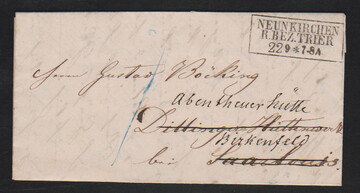 NEUNKIRCHEN
R.BEZ.TRIER
22 9 * 7-8A
Herrn Gustav Böcking
Abentheuer hütte
Dillinger Hüttenwerk
Birkenfeld
bei Saarlouis.